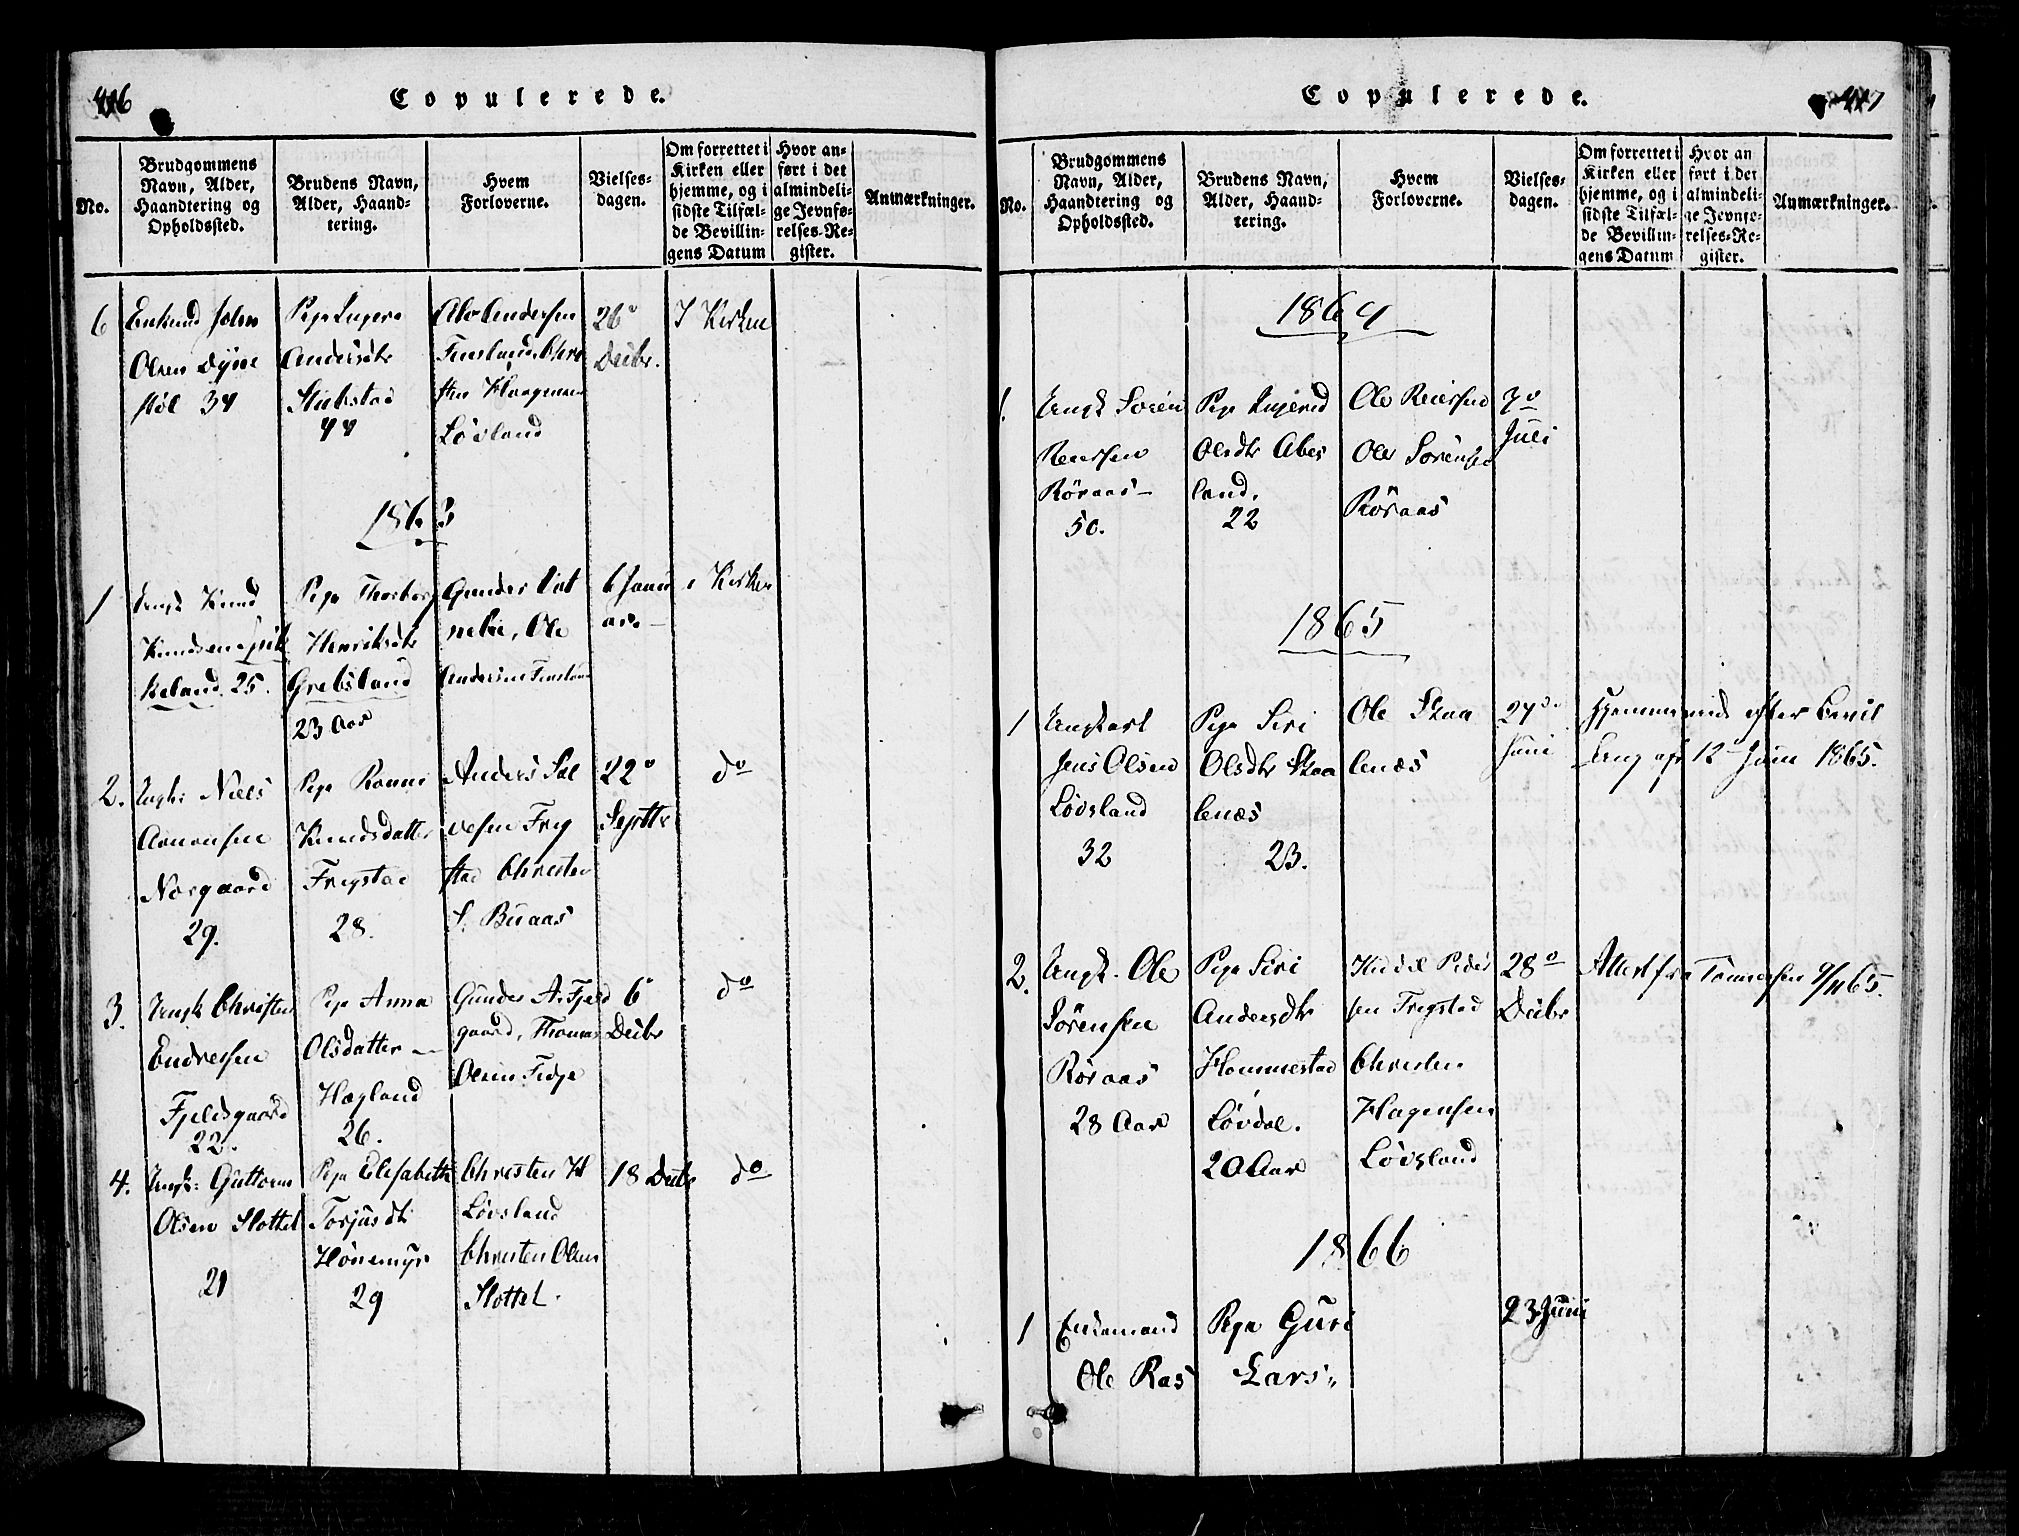 416
Copulerede.
No.
Brudgommens Navn, Alder, Haandtering og Opholdssted.
Brudens Navn, Alder, Haandtering.
Hvem Forloverne.
Vielsesdagen.
Om forrettet i Kirken eller hjemme, og i sidste Tilfælde Bevillingens Datum
Hvor anført i det almindelige Jevnførelses-Register.
Anmærkninger.
6
Enkmd John
Olsen Dyne
støl 34
Pige Ingera
Andersdtr
Stubstad
44
Alv Andersen
Finsland, Chri
sten Haagensen
Løvland
26º
Decbr.
I Kirken
1863
1
Ungk Knud
Knudsen
keland. 25.
Pige Thorbor
Henriksdtr
Grebsland
23 Aar
Gunder
Ole
Andersen Finsland
6 Janu
ar.
i Kirken
2.
Ungk: Niels
Aanensen
Norgaard
29.
Pige Ronni
Knudsdatter
Frigstad
28.
Anders Sal
vesen Frig
stad Christen
S. Buaas
22º
Septbr
dº
3.
Ungk Christen
Endresen
Fjeldsgaard
22.
Pige Anna
Olsdatter
Hægland
26.
Gunder A. Fjeld
gaard, Thomas
Olsen Fidje
6º
Decbr
dº
4.
Ungk: Guttorm
Olsen Slottet
21
Pige Elisabeth
Torjusdtr
Hønemyr
29
Christen H
Løvsland
Christen Olsen
Slottet.
18 Decbr
dº
417
Copulerede.
No.
Brudgommens Navn, Alder, Haandtering og Opholdssted.
Brudens Navn, Alder, Haandtering.
Hvem Forloverne.
Vielsesdagen.
Om forrettet i Kirken eller hjemme, og i sidste Tilfælde Bevillingens Datum
Hvor anført i det almindelige Jevnførelses-Register.
Anmærkninger.
1864
1.
Ungk Sørén
Reiersen
Røraas
50.
Pige Ingerid
Olsdtr Abes
land.
22
Ole Reiersen
Ole Sørensen
Røraas
7º
Juli
1865
1
Ungkarl
Jens Olsen
Løvsland
32
Pige Siri
Olsdtr Skaa
lenæs
23.
Ole Skaa
lenæs
27º
Juni
Hjemmeviede efter Bevil
ling af 12 Juni 1865.
2.
Ungk. Ole
Sørensen
Røraas
28 Aar
Pige Siri
Andersdtr
Hommestad
Løvdal.
20 Aar
Peder
sen Frigstad
Christen
Hagensen
Løvsland
28º
Decbr
Attest fra Tønnesen 9/11 65.
1866
1
Enkemand
Ole Ras
Pige Guri
Lars„
23 Juni